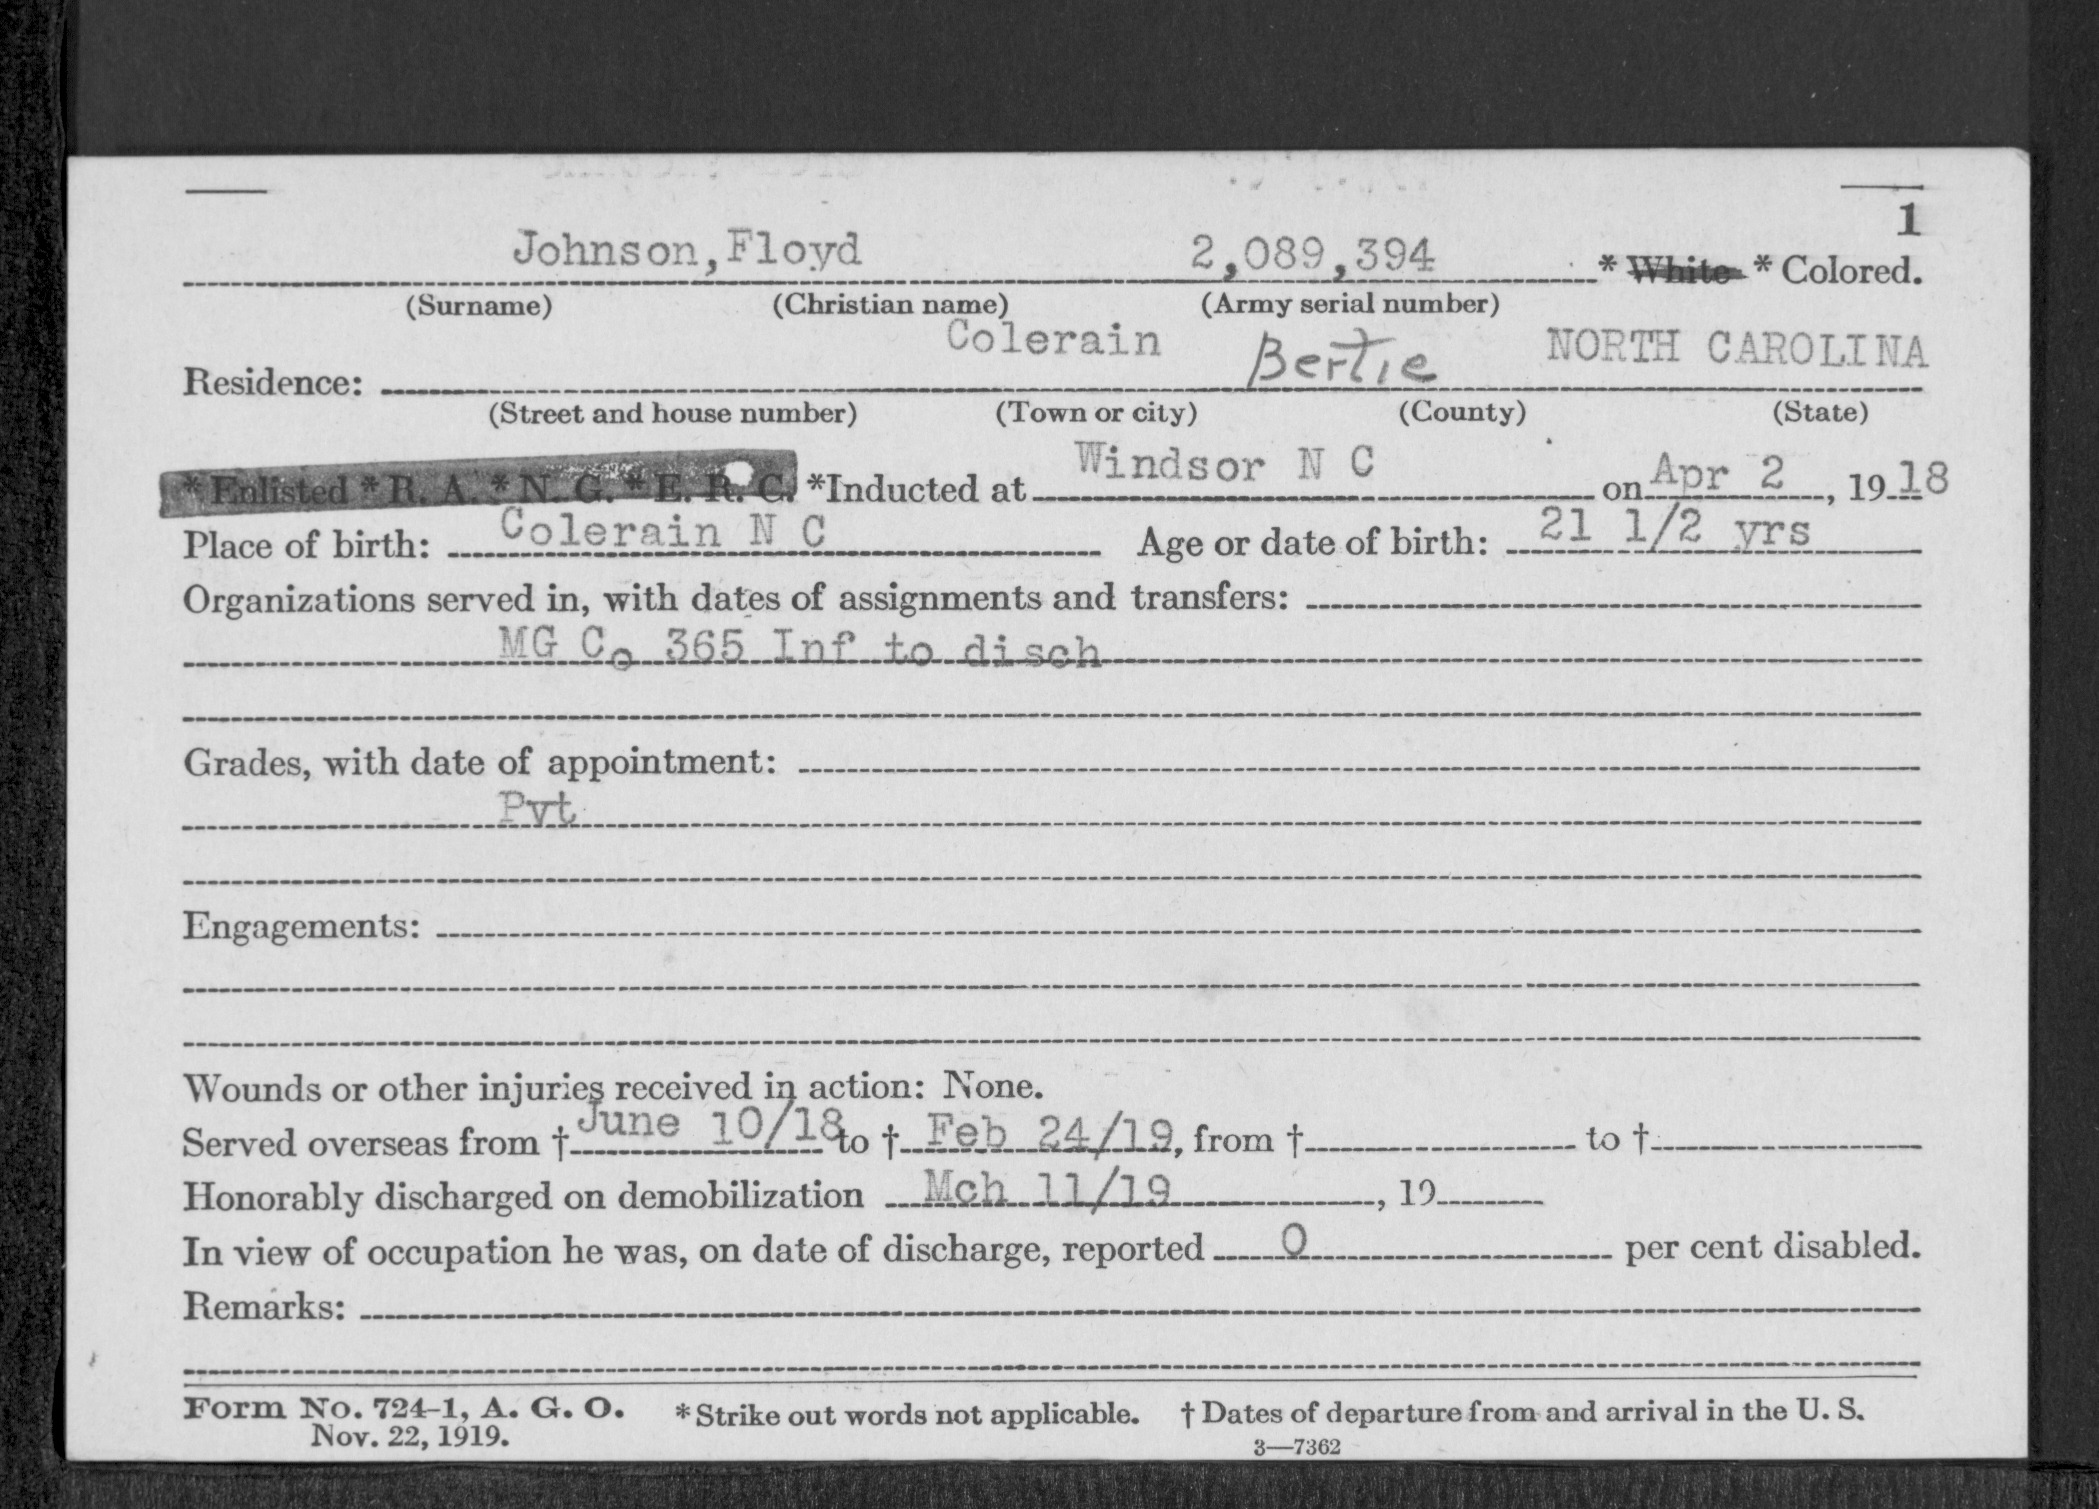 1
Johnson, Floyd 2,089,394 * White * Colored.
(Surname) (Christian name) (Army serial number)
Residence: Colerain Bertie NORTH CAROLINA
(Street and house number) (Town or city) (County) (State)
* Enlisted * R. A. * N. G. * E. R. C. *Inducted at Windsor N C on Apr 2, 1918
Place of birth: Colerain N C Age or date of birth: 21 1/2 yrs
Organizations served in, with dates of assignments and transfers:
MG Co 365 Inf to disch
Grades, with date of appointment:
Pvt
Engagements:
Wounds or other injuries received in action: None.
Served overseas from † June 10/18 to † Feb 24/19, from † to †
Honorably discharged on demobilization Mch 11/19, 19
In view of occupation he was, on date of discharge, reported 0 per cent disabled.
Remarks:
Form No. 724-1, A. G. O. * Strike out words not applicable. † Dates of departure from and arrival in the U. S.
Nov. 22, 1919. 3—7362